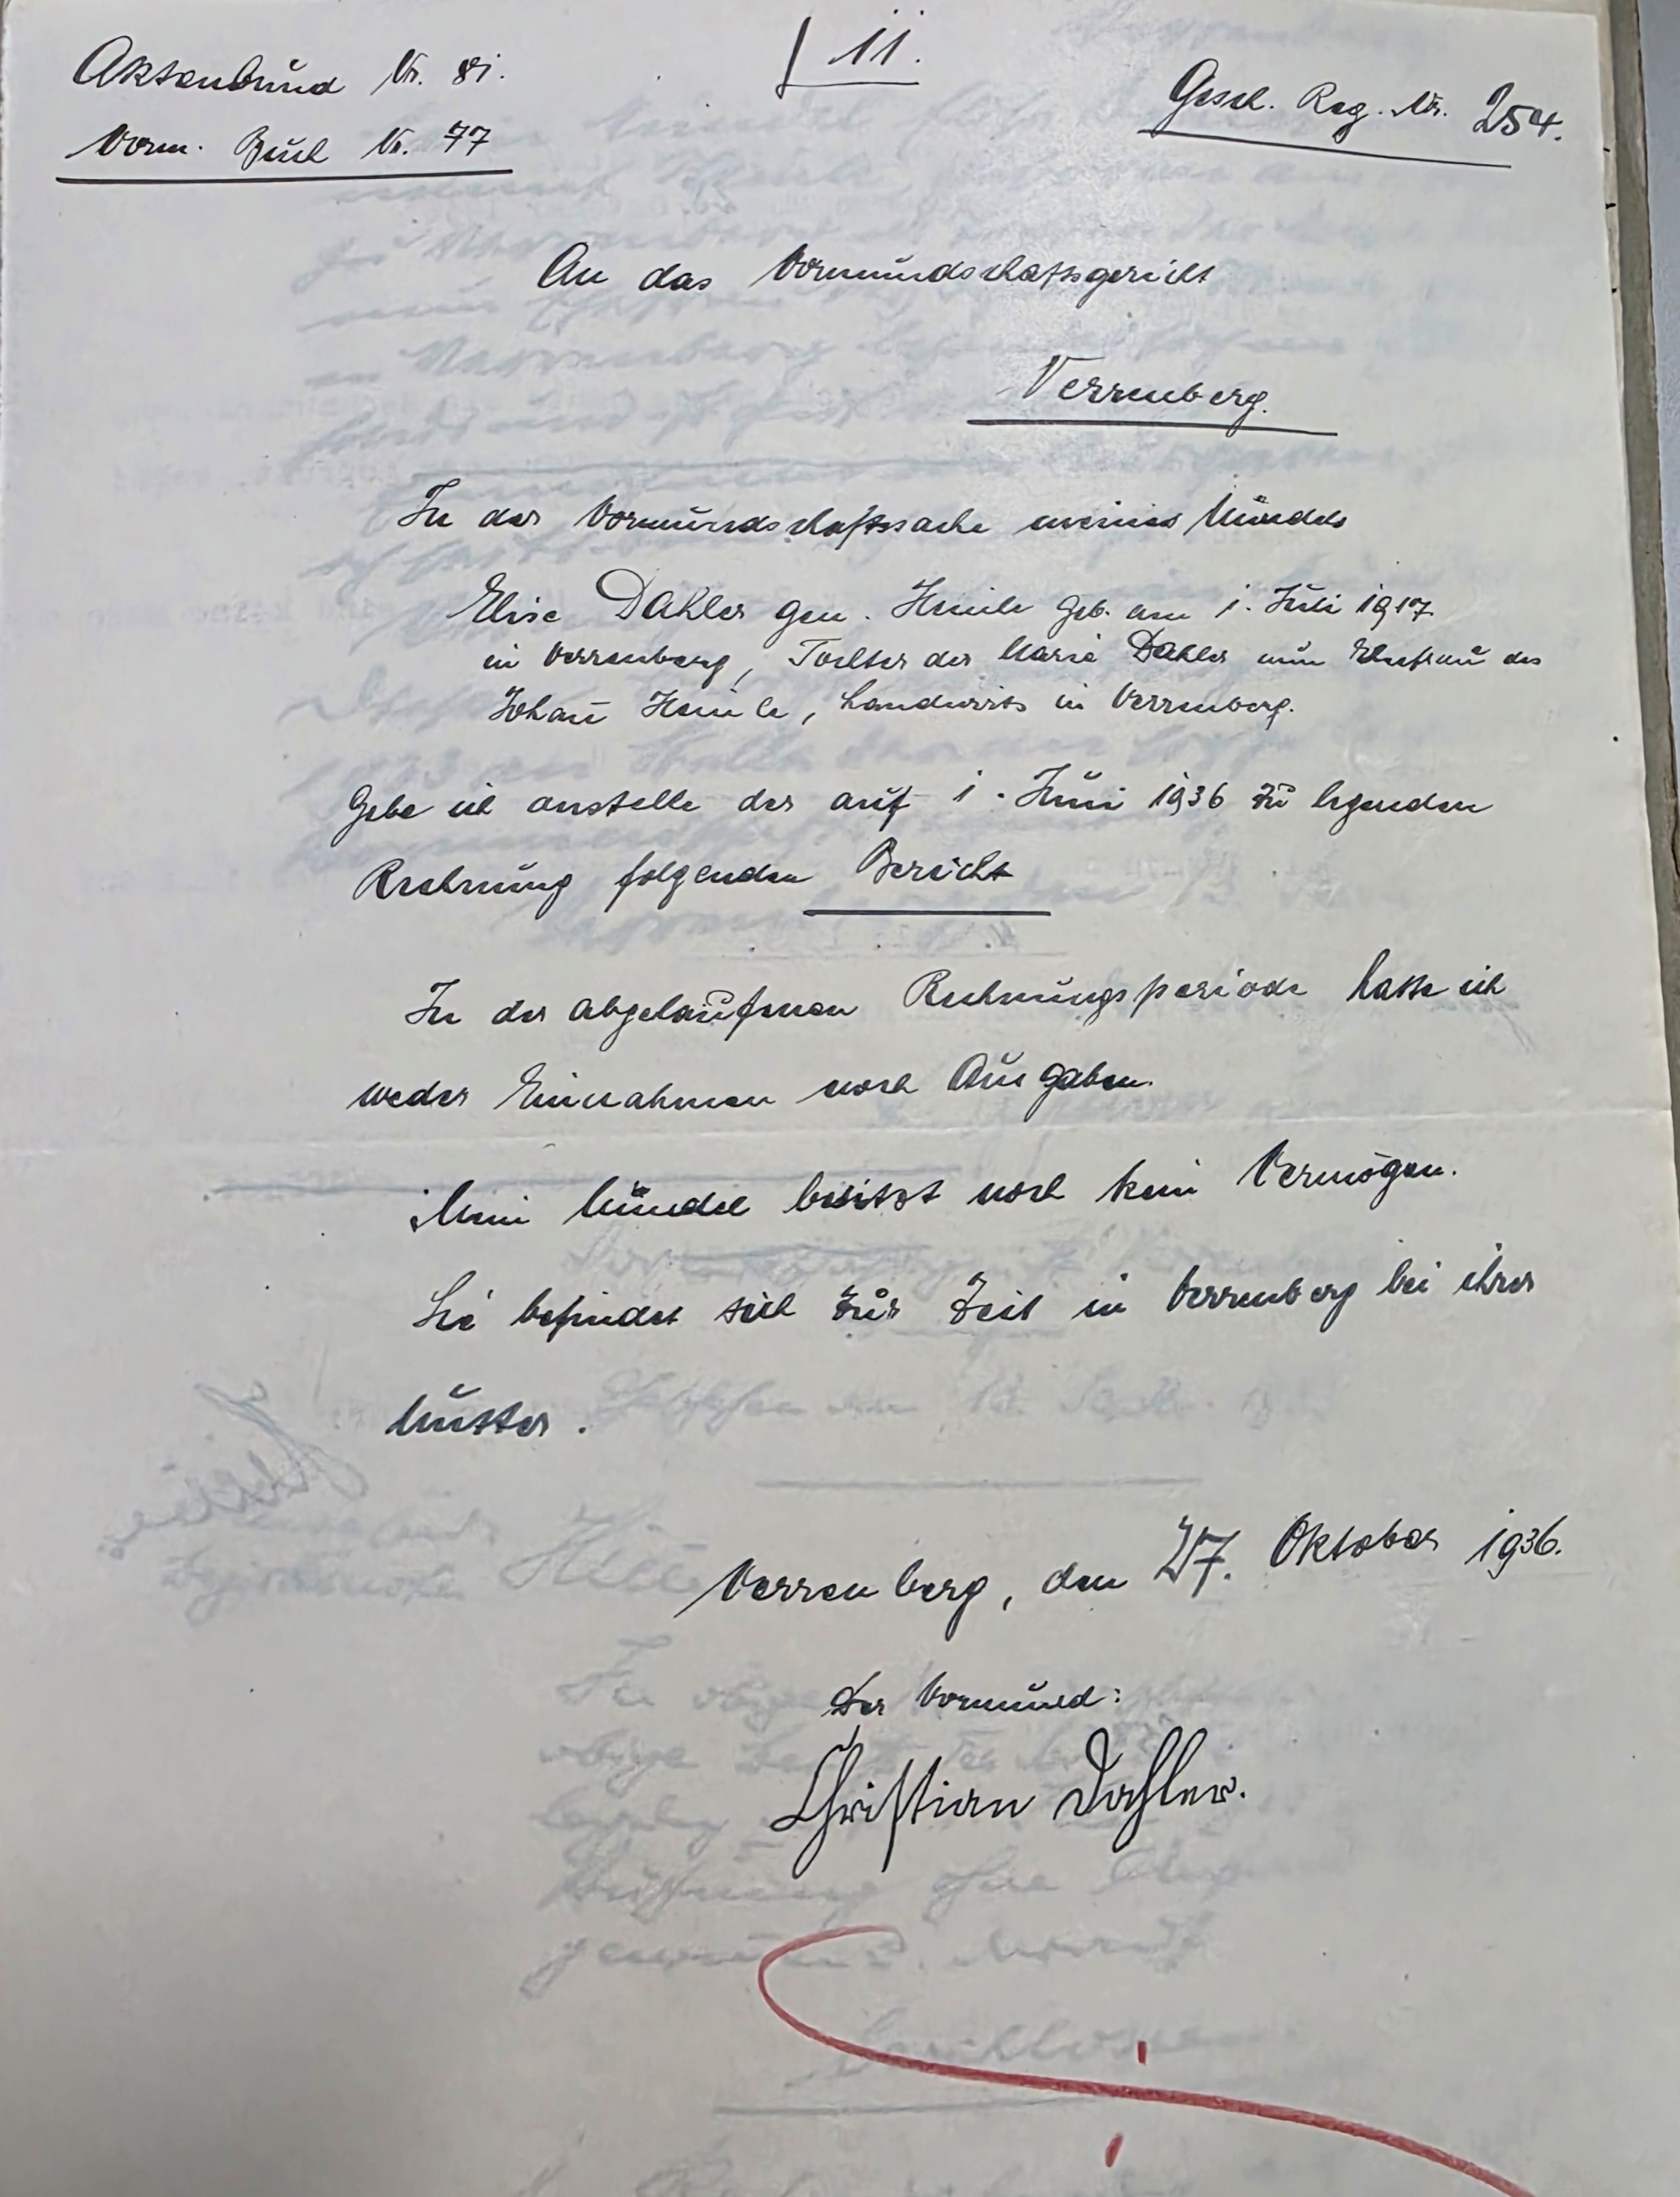 Aktenbund Nr. 81.
11.
Gesch. Reg. Nr. 254.
Vorm. Buch Nr. 77
An das Vormundschaftsgericht
Verrenberg.
In der Vormundschaftssache meines Mündels
Elise Dahler gen. Heinle geb. am 1. Juli 1917
in Verrenberg, Tochter der Maria Dahler nun Ehefrau des
Johann Heinle, Landwirts in Verrenberg.
Gebe ich anstelle der auf 1. Juni 1936 zu legenden
Rechnung folgenden Bericht
In der abgelaufenen Rechnungsperiode hatte ich
weder Einnahmen noch Ausgaben.
Mein Mündel besitzt noch kein Vermögen.
Sie befindet sich zur Zeit in Verrenberg bei ihrer
Mutter.
Verrenberg, den 27. Oktober 1936.
Der Vormund:
Christian Dahler.